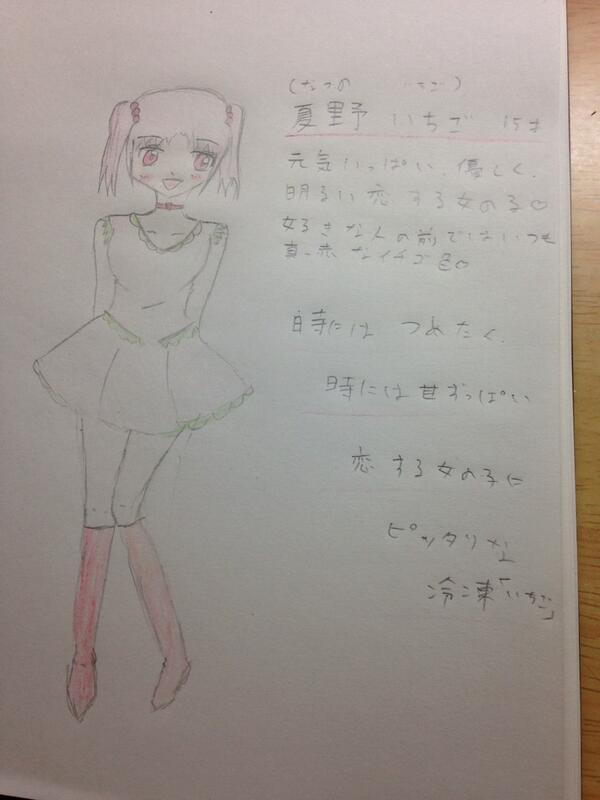 (なつの いちご)
夏野 いちご 15才
元気いっぱい、優しく、
明るい恋する女の子♡
好きな人の前ではいつも
真っ赤なイチゴ色♡
時には つめたく、
時には甘ずっぱい
恋する女の子に
ピッタリな
冷凍「いちご」